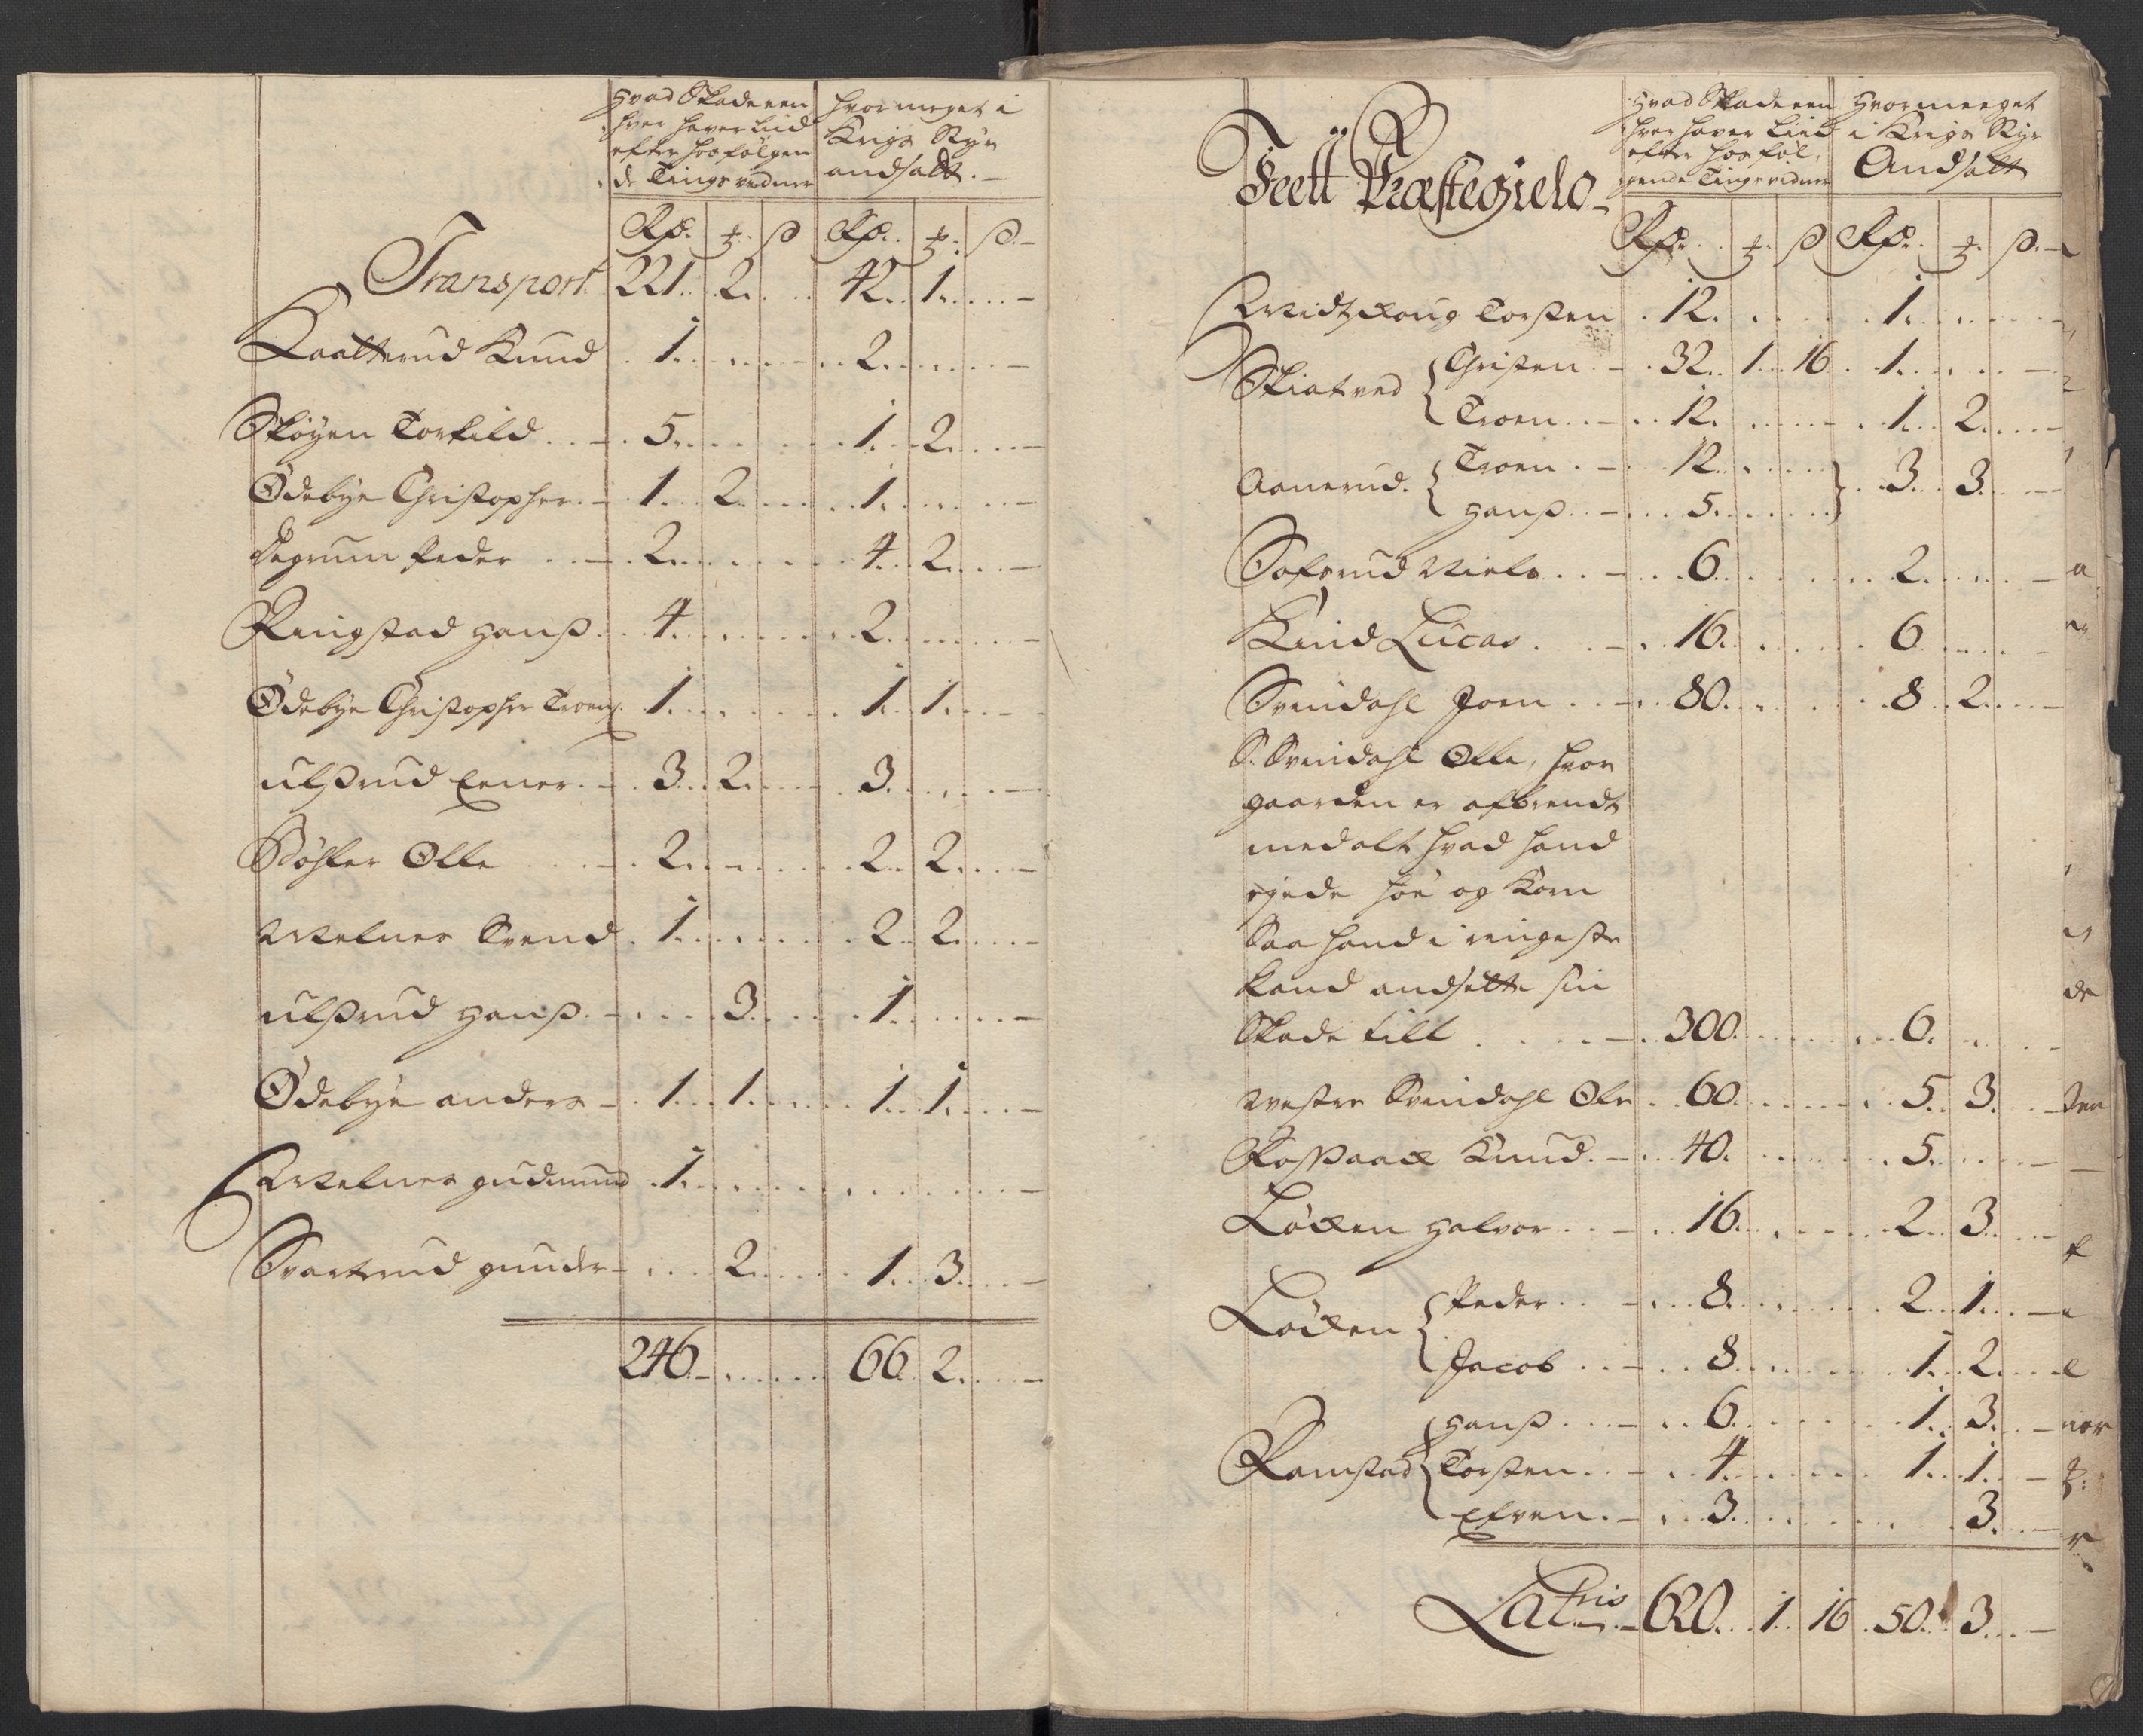 Hvad Skade een
hver haver Liid
efter hosfølgen
de Tings vidner
hvor meget i
Krigs Styr
andsatt.
Rdr. ƶ. ß Rdr. ƶ. ß.
Transport 221. 2. 42. 1.
Kaatterud Knud 1. 2.
Skøyen Torkild 5. 1. 2.
Ødebye Christopher 1. 2. 1.
Peder 2. 4. 2.
Ringstad Hanß 4. 2.
Ødebye Christopher Troens. 1. 1. 1.
Ulßrud Eener 3. 2. 3.
Bøhler Olle 2. 2. 2.
Melnes Svend 1. 2. 2.
Ulßrud Hanß 3. 1.
Ødebye anders 1. 1. 1. 1.
Melnes gudmund 1.
Svartrud gunder 2. 1. 3.
246 66 2.
Feett Præstegield
Hvad Skade een
hver haver Liid
efter hosføl,
gende Tings vidner
Hvor meeget
i Krigs Styr
Andsatt
Rdr. ƶ. ß Rdr. ƶ. ß.
Midtskoug Torsten 12. 1.
Skiatved { Christen 32. 1. 16. 1.
Troen 12. 1. 2.
Aanerud. { Troen 12. } 3. 3.
Hanß 5.
Sofrud Niels 6. 2.
Kind Lucas 16. 6
Svindahl Joen 80. 8. 2.
S. Svindahl Olle, hvor
gaarden er afbrendt
med alt hvad hand
ejede høe og Korn
Saa hand i ringeste
kand andsette sin
Skade till 300. 6.
westre Svindahl Ole 60. 5. 3.
Knud 40. 5.
Løcken Halvor 16. 2. 3.
Løcken { Peder 8. 2. 1.
Jacob 8. 1. 2.
Ramstad { Hanß 6. 1. 3.
Torsten 4. 1. 1.
Efven 3. 3.
Latris 620. 1. 16. 50. 3.